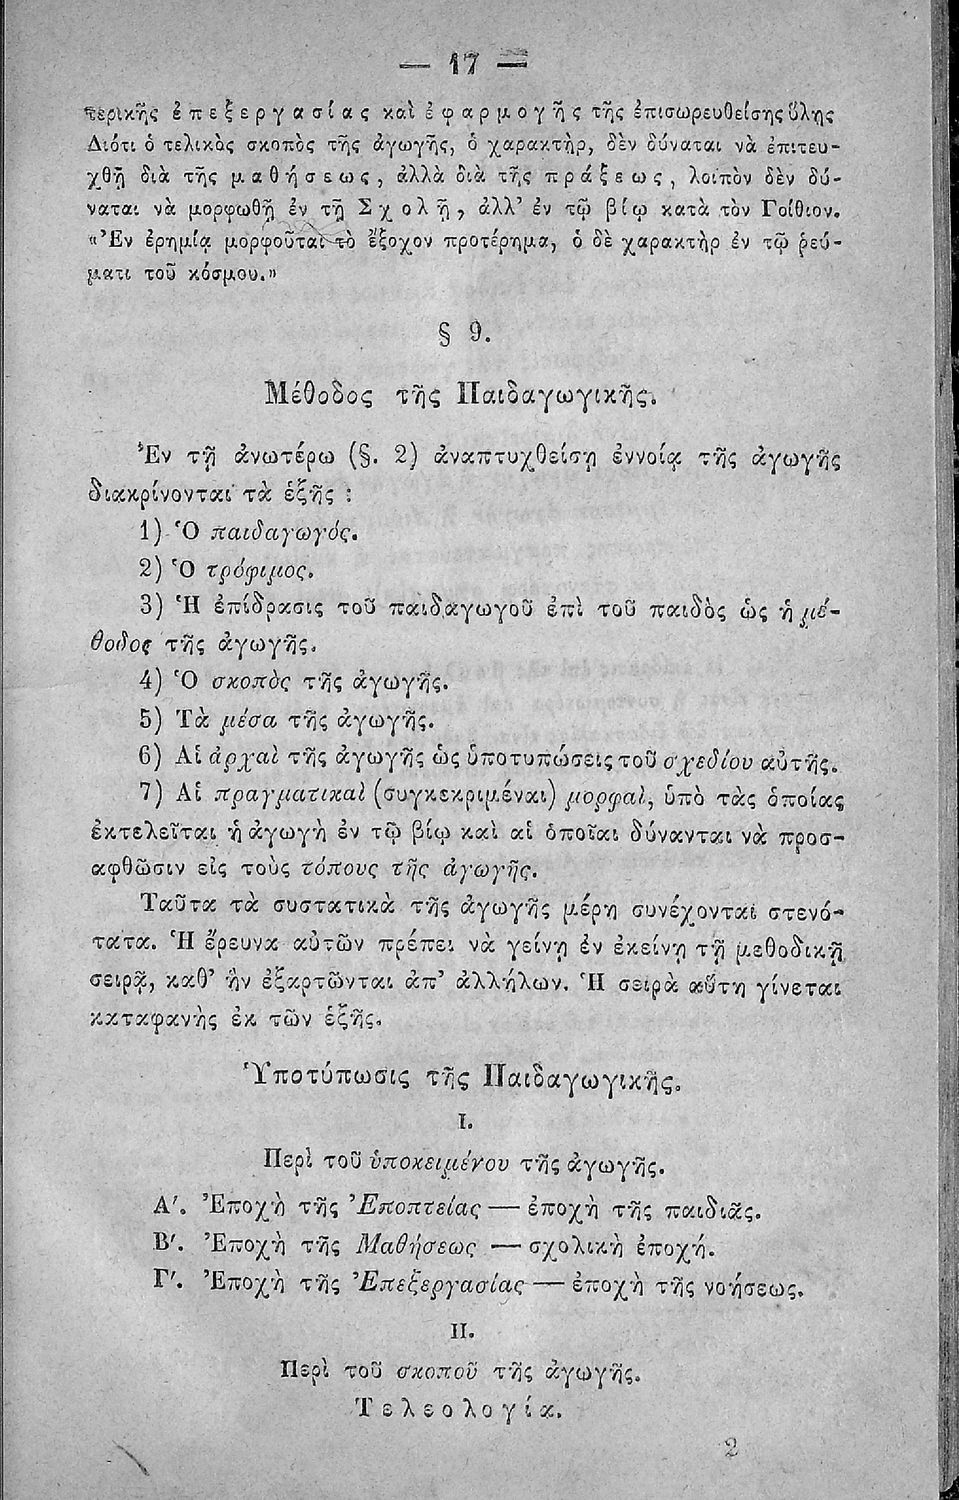 — 17 —
τερικῆς ἐπεξεργασίας καὶ ἐφαρμογῆς τῆς ἐπισωρευθείσης ὕλης
Διότι ὁ τελικὸς σκοπὸς τῆς ἀγωγῆς, ὁ χαρακτὴρ, δὲν δύναται νὰ ἐπιτευ-
χθῇ διὰ τῆς μαθήσεως, ἀλλὰ διὰ τῆς πράξεως, λοιπὸν δὲν δύ-
ναται νὰ μορφωθῇ ἐν τῇ Σχολῇ, ἀλλ' ἐν τῷ βίῳ κατὰ τὸν Γοίθιον.
«Ἐν ἐρημίᾳ μορφοῦται τὸ ἔξοχον προτέρημα, ὁ δὲ χαρακτὴρ ἐν τῷ ῥεύ-
ματι τοῦ κόσμου.»
§ 9.
Μέθοδος τῆς Παιδαγωγικῆς.
Ἐν τῇ ἀνωτέρω (§. 2) ἀναπτυχθείσῃ ἐννοίᾳ τῆς ἀγωγῆς
διακρίνονται τὰ ἑξῆς :
1) Ὁ παιδαγωγός.
2) Ὁ τρόφιμος.
3) Ἡ ἐπίδρασις τοῦ παιδαγωγοῦ ἐπὶ τοῦ παιδὸς ὡς ἡ μέ-
θοδος τῆς ἀγωγῆς.
4) Ὁ σκοπὸς τῆς ἀγωγῆς.
5) Τὰ μέσα τῆς ἀγωγῆς.
6) Αἱ ἀρχαὶ τῆς ἀγωγῆς ὡς ὑποτυπώσεις τοῦ σχεδίου αὐτῆς.
7) Αἱ πραγματικαὶ (συγκεκριμέναι) μορφαὶ, ὑπὸ τὰς ὁποίας
ἐκτελεῖται ἡ ἀγωγὴ ἐν τῷ βίῳ καὶ αἱ ὁποῖαι δύνανται νὰ προσ-
αφθῶσιν εἰς τοὺς τόπους τῆς ἀγωγῆς.
Ταῦτα τὰ συστατικὰ τῆς ἀγωγῆς μέρη συνέχονται στενό-
τατα. Ἡ ἔρευνα αὐτῶν πρέπει νὰ γείνῃ ἐν ἐκείνῃ τῇ μεθοδικῇ
σειρᾷ, καθ' ἣν ἐξαρτῶνται ἀπ' ἀλλήλων. Ἡ σειρὰ αὕτη γίνεται
καταφανὴς ἐκ τῶν ἑξῆς.
Ὑποτύπωσις τῆς Παιδαγωγικῆς.
I.
Περὶ τοῦ ὑποκειμένου τῆς ἀγωγῆς.
Α′. Ἐποχὴ τῆς Ἐποπτείας — ἐποχὴ τῆς παιδιᾶς.
Β′. Ἐποχὴ τῆς Μαθήσεως — σχολικὴ ἐποχή.
Γ′. Ἐποχὴ τῆς Ἐπεξεργασίας — ἐποχὴ τῆς νοήσεως.
II.
Περὶ τοῦ σκοποῦ τῆς ἀγωγῆς.
Τελεολογία.
2